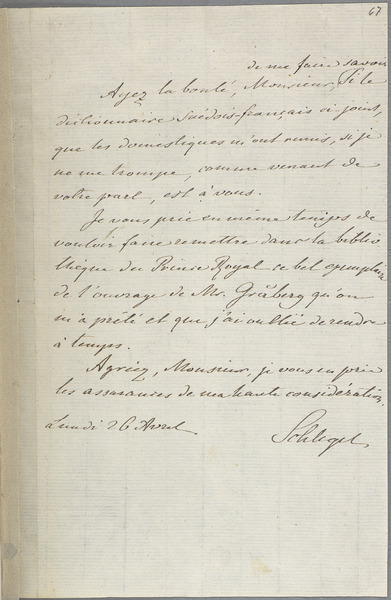 67
de me faire savoir
Ayez la bonté, Monsieur, si le
dictionnaire Suédois-français ci-joint,
que les domestiques m'ont remis, si je
ne me trompe, comme venant de
votre part, est à vous.
Je vous prie en même temps de
vouloir faire remettre dans la biblio
thèque du Prince Royal ce bel exemplaire
de l'ouvrage de Mr. Gråberg qu'on
m'a prêté et que j'ai oublié de rendre
à temps.
Agréez, Monsieur, je vous en prie
les assurances de ma haute considération,
Lundi 26 Avril
Schlegel